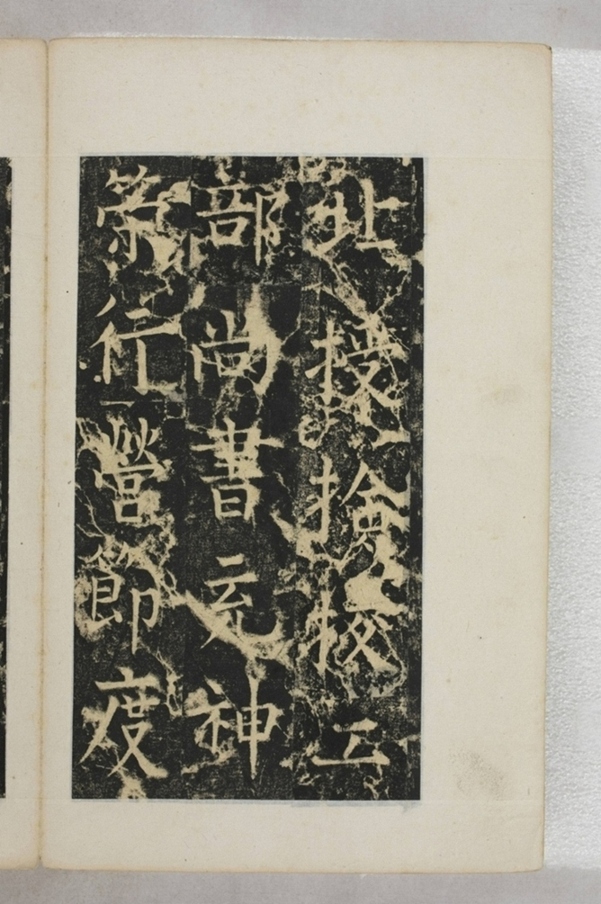 北授撿挍工
部尚書充神
策行營節度